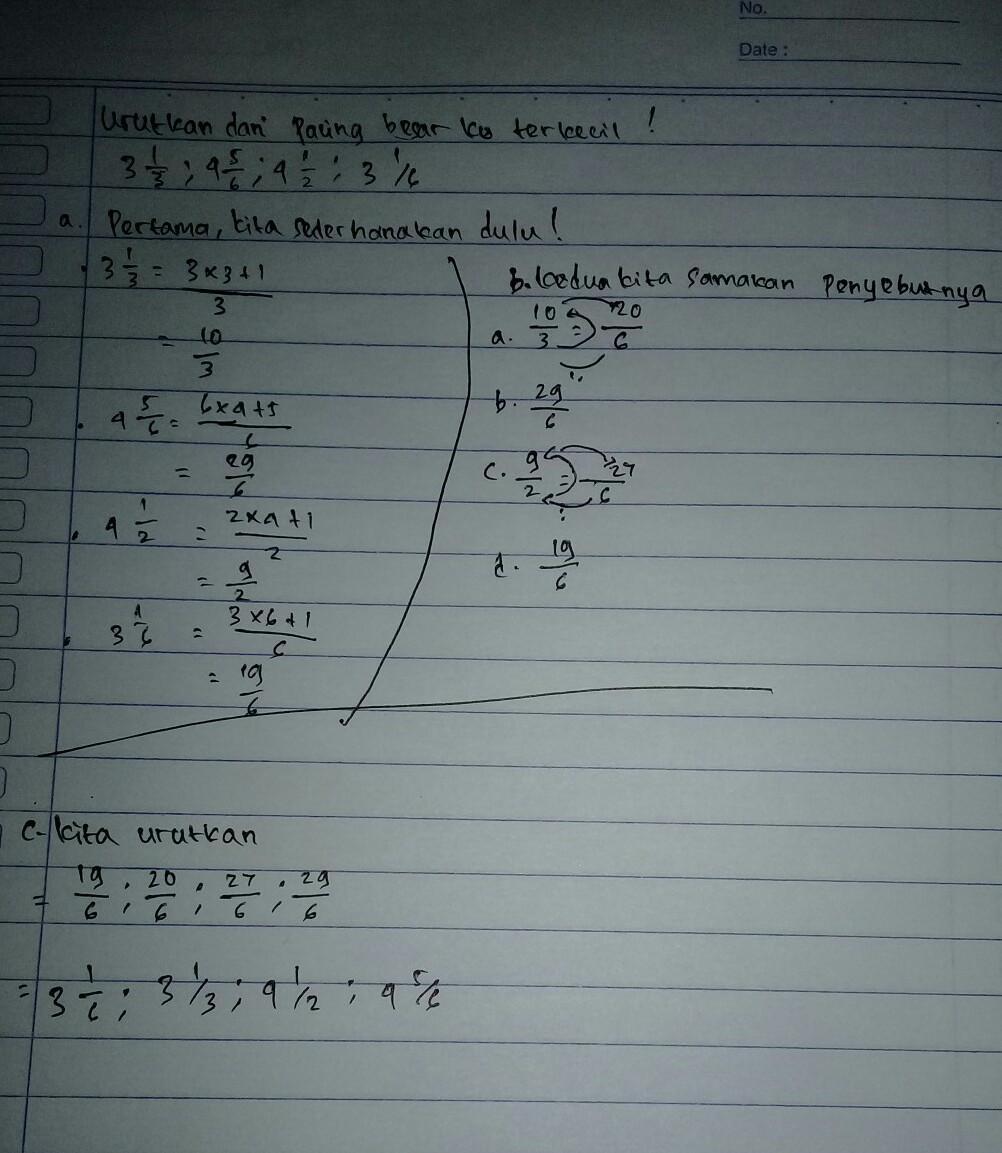 No.
Date :
Urutkan dari Paling besar ke terkecil !
3 1/3 ; 4 5/6 ; 4 1/2 ; 3 1/6
a. Pertama, kita sederhanakan dulu!
3 1/3 = 3x3+1/3
= 10/3
4 5/6 = 6x4+5/6
= 29/6
4 1/2 = 2x4+1/2
= 9/2
3 1/6 = 3x6+1/6
= 19/6
b. kedua kita samakan Penyebutnya
a. 10/3 = 20/6
b. 29/6
c. 9/2 = 27/6
d. 19/6
C. kita urutkan
= 19/6 ; 20/6 ; 27/6 ; 29/6
= 3 1/6 ; 3 1/3 ; 4 1/2 ; 4 5/6